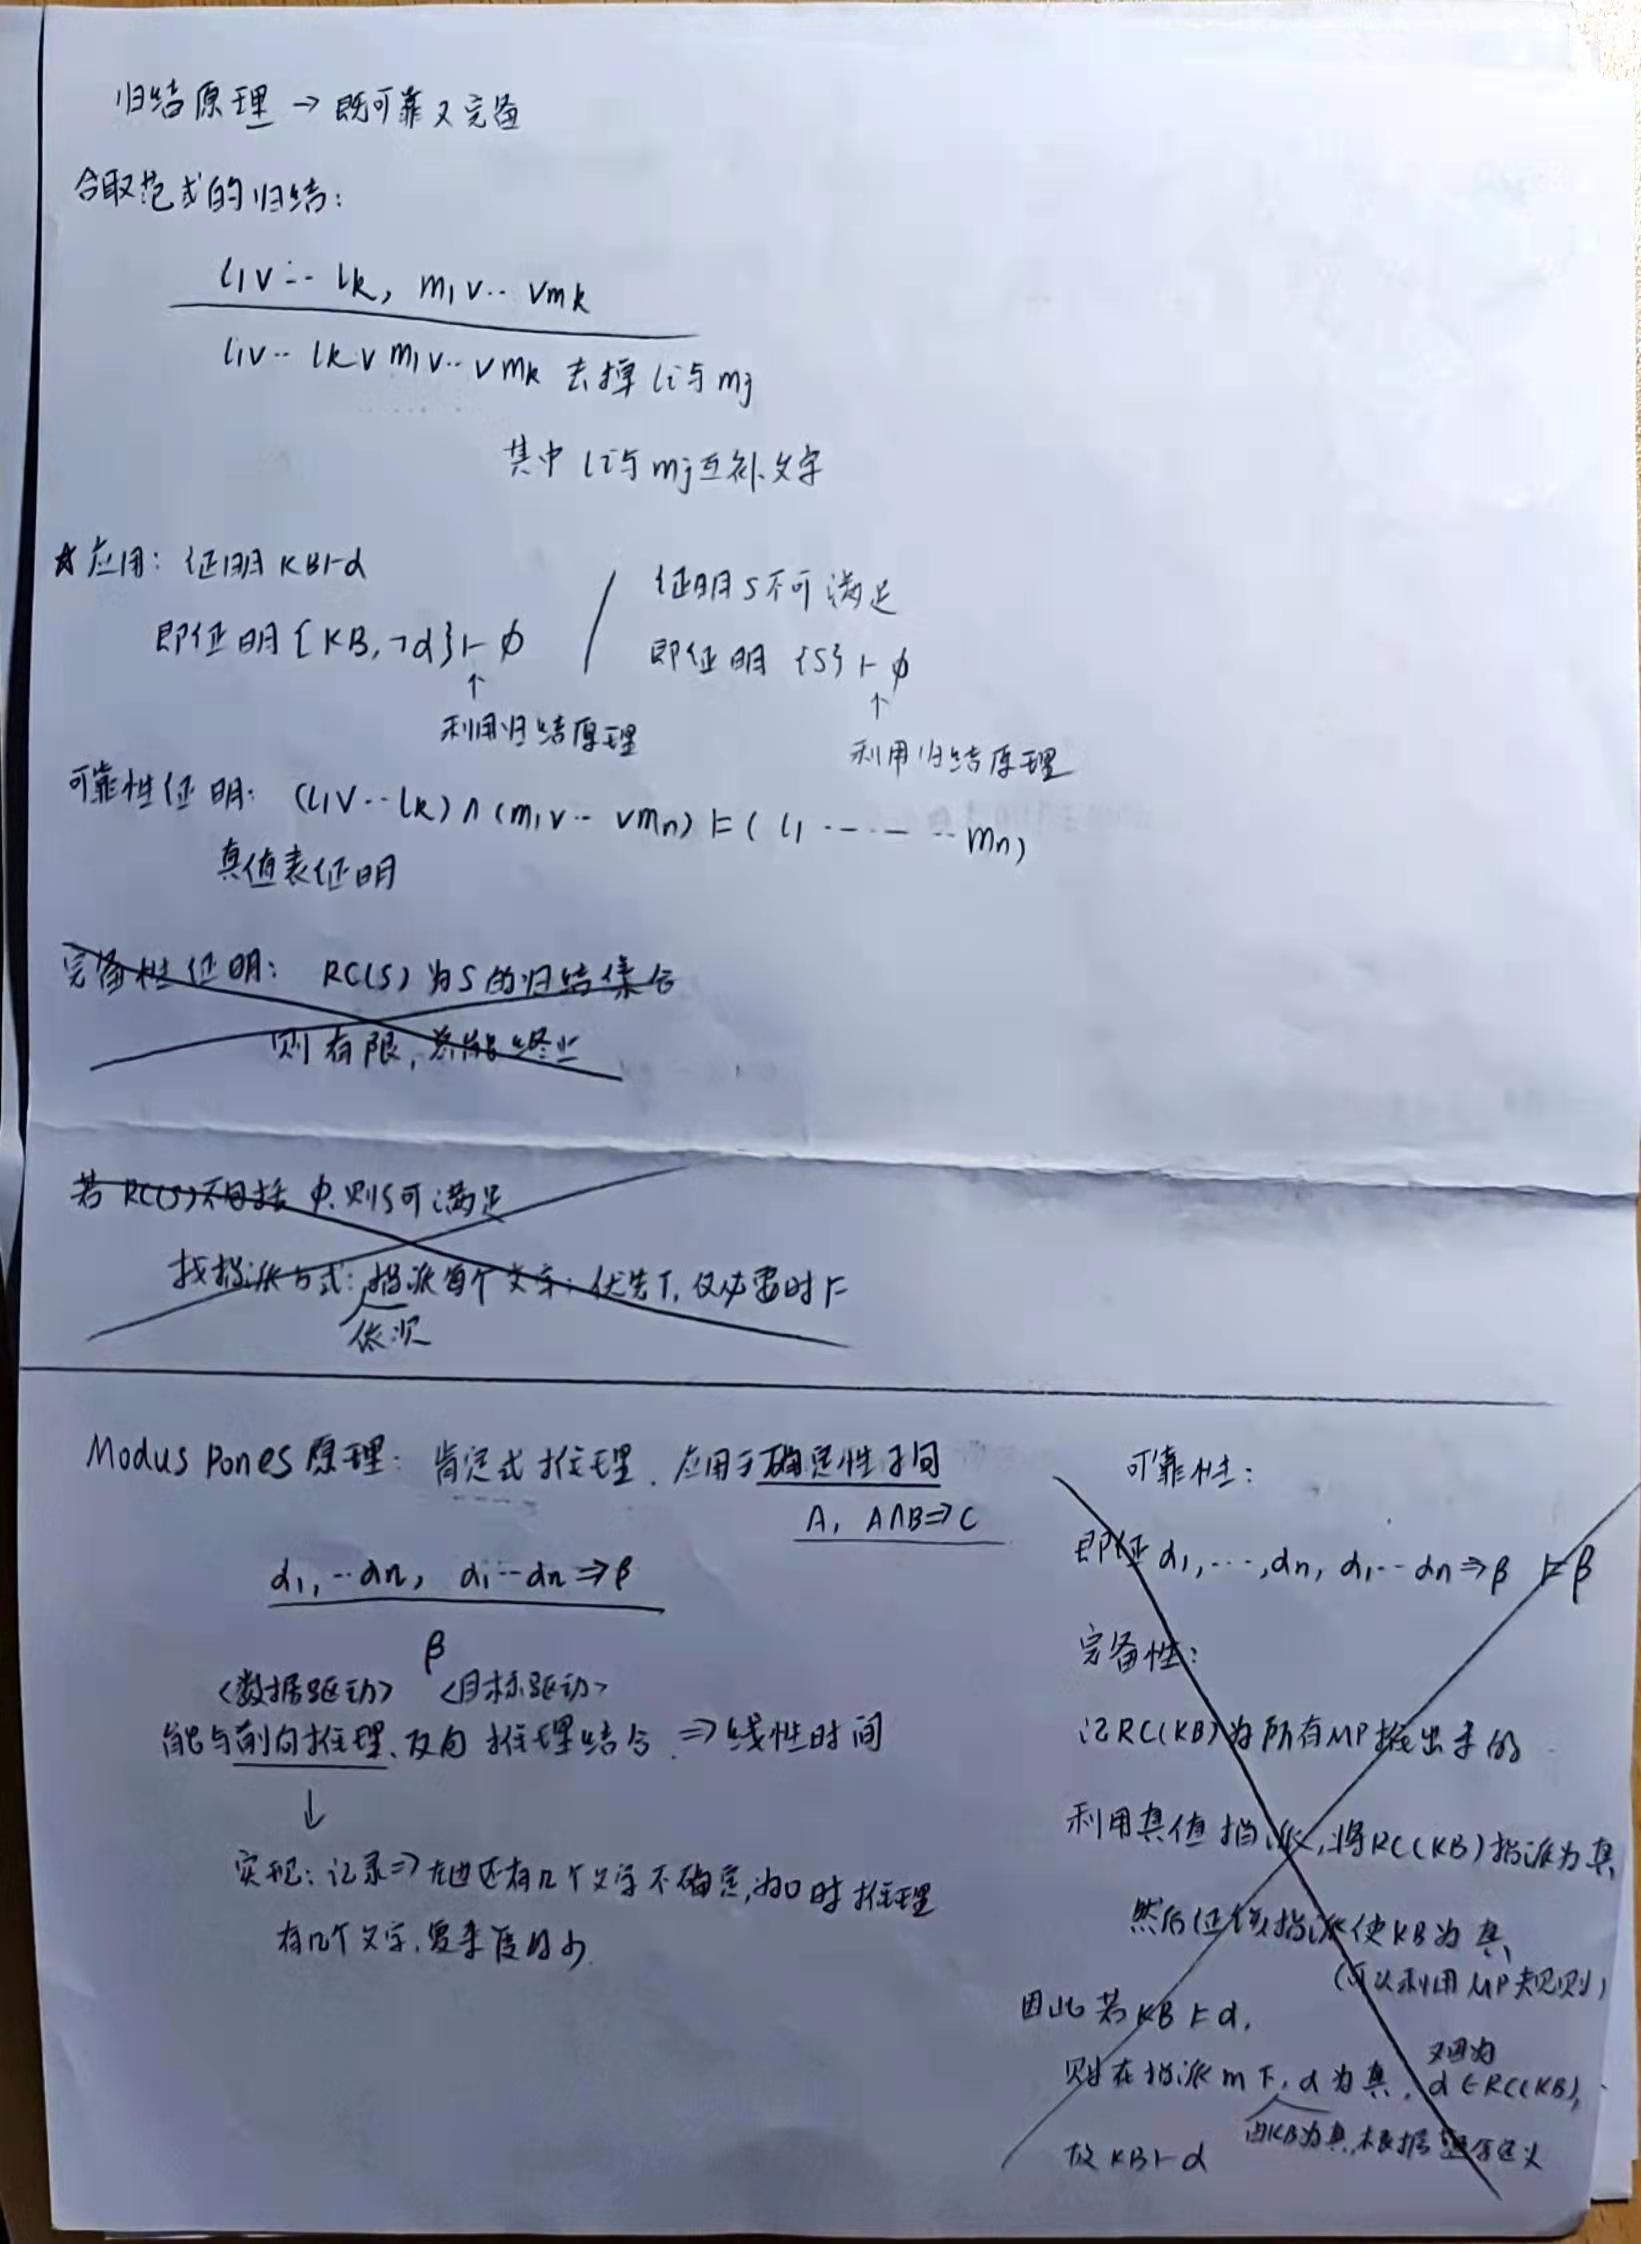 归结原理 → 既可靠又完备
合取范式的归结:
l1∨‥ lk, m1∨‥ ∨mk
l1∨‥ lk∨m1∨‥∨mk 去掉li与mj
其中li与mj互补文字
☆应用: 证明KB⊢α
即证明{KB,¬α}⊢ϕ
↑
利用归结原理
证明S不可满足
即证明 {S}⊢ϕ
↑
利用归结原理
可靠性证明: (l1∨‥lk)∧(m1∨‥ ∨mn)⊨( l1 ‥‥ mn)
真值表证明
完备性证明: RC(S)为S的归结集合
则有限, 总能终止
若RC(S)不包括ϕ,则S可满足
找指派方式: 指派每个文字: 优先T, 仅必要时F
依次
Modus Pones原理: 肯定式推理. 应用于确定性子句
A, A∧B⇒C
α1,‥αn, α1‥αn⇒β
β
<数据驱动> <目标驱动>
能与前向推理、反向推理结合 ⇒线性时间
↓
实现: 记录⇒左边还有几个文字不确定,为0时推理
有几个文字,复杂度多少.
可靠性:
即证α1,‥‥,αn, α1‥αn⇒β ⊨β
完备性:
记RC(KB)为所有MP推出来的
利用真值指派,将RC(KB)指派为真
然后证该指派使KB为真
(可以利用MP规则)
因此若KB⊨α,
则在指派m下, α为真, 又因为
α∈RC(KB),
因KB为真,根据蕴含定义
故KB⊢α